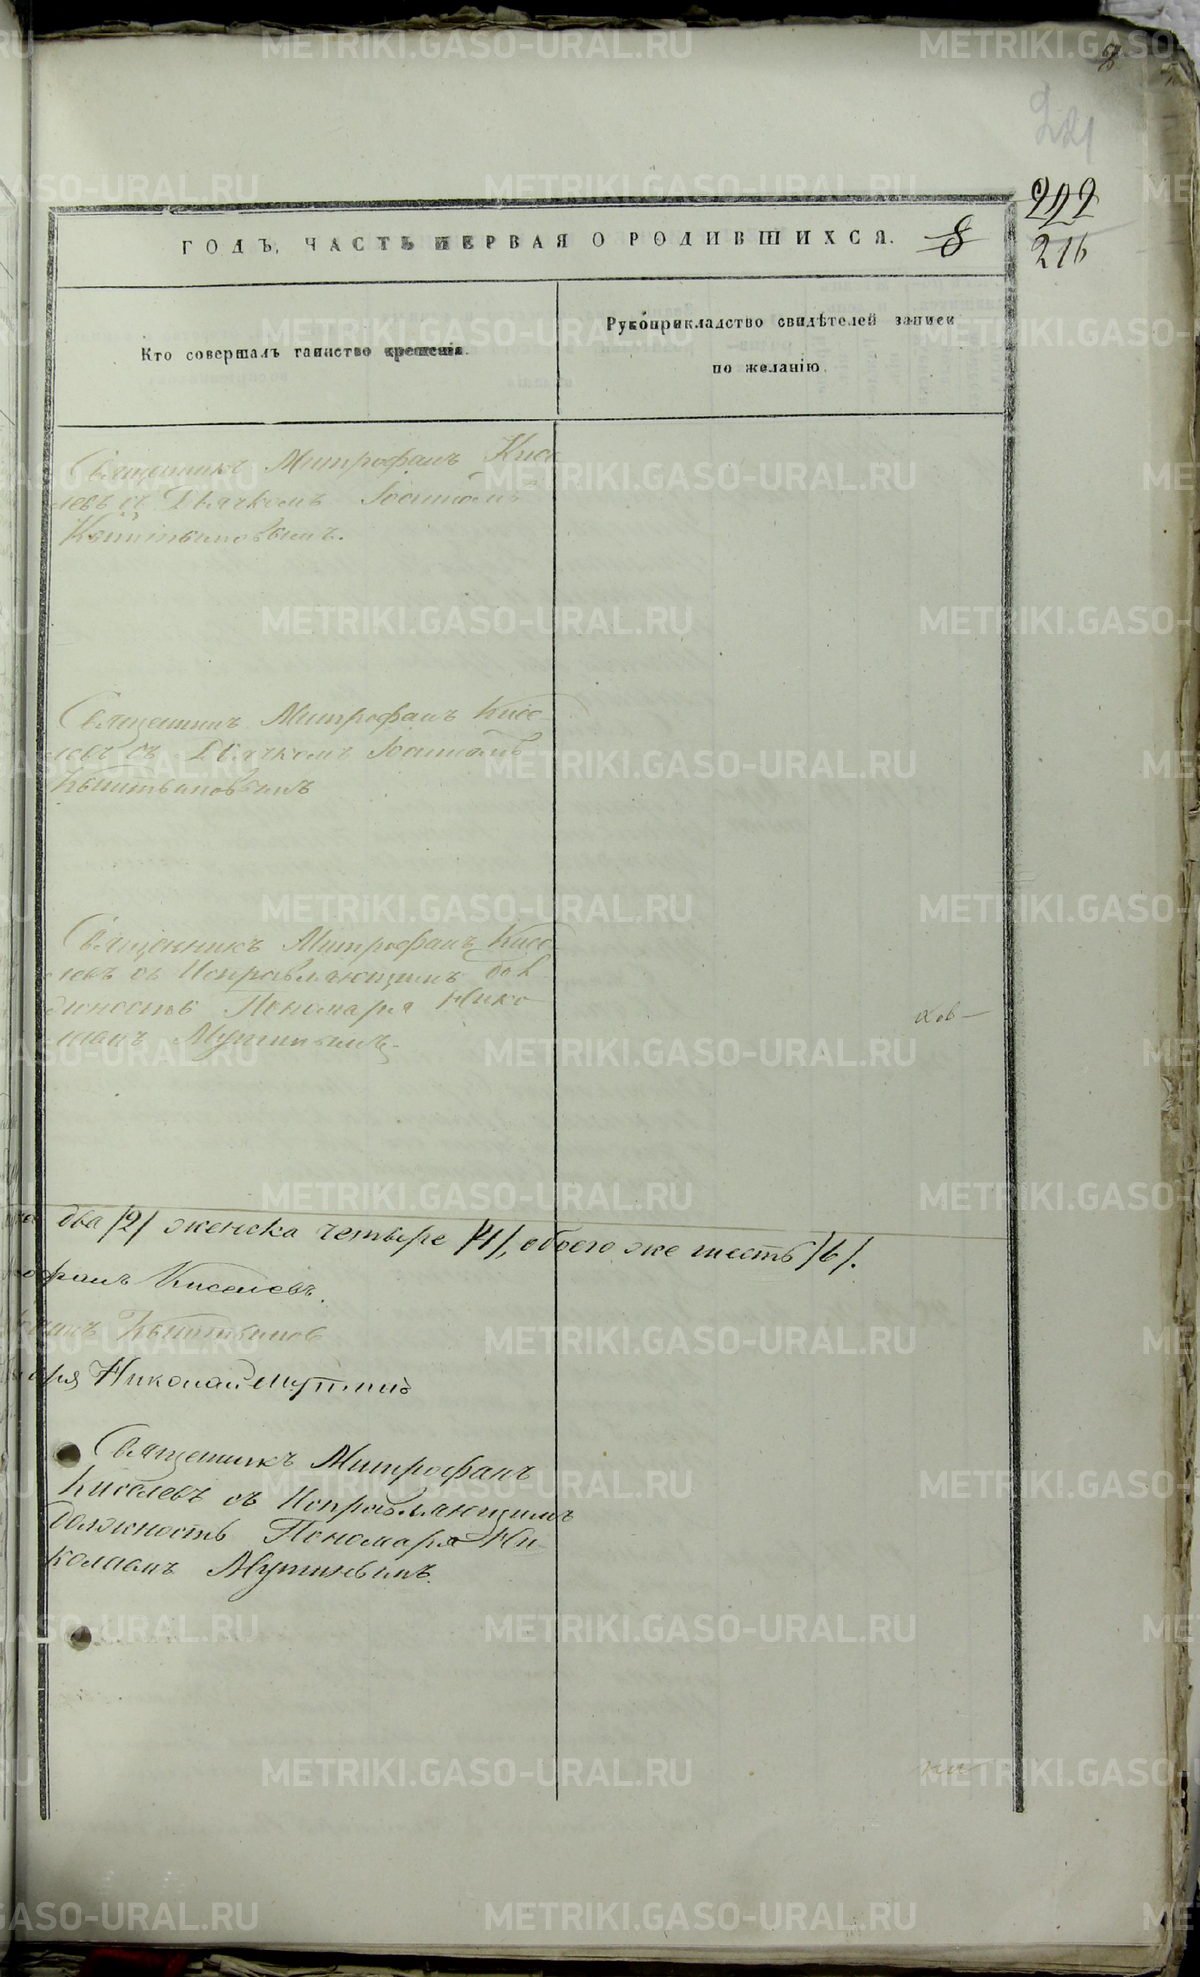 8
221
222
216
ГОДЪ, ЧАСТЬ ПЕРВАЯ О РОДИВШИХСЯ. 8
Кто совершалъ таинство крещенія.
Рукоприкладство свидѣтелей записи
по желанію.
Священникъ Митрофанъ Кисе
левъ съ Дьячкомъ Іоанномъ
Кыштымовымъ.
Священникъ Митрофанъ Кисе
левъ съ Дьячкомъ Іоанномъ
Кыштымовымъ
Священникъ Митрофанъ Кисе
левъ съ Исправляющимъ дол
жность Пономаря Нико
лаемъ Мутинымъ.
два /2/ женска четыре /4/, обоего же шесть /6/.
офанъ Киселевъ.
Николай Мутинъ
Священникъ Митрофанъ
Киселевъ съ Исправляющимъ
должность Пономаря Ни
колаемъ Мутинымъ.
METRIKI.GASO-URAL.RU